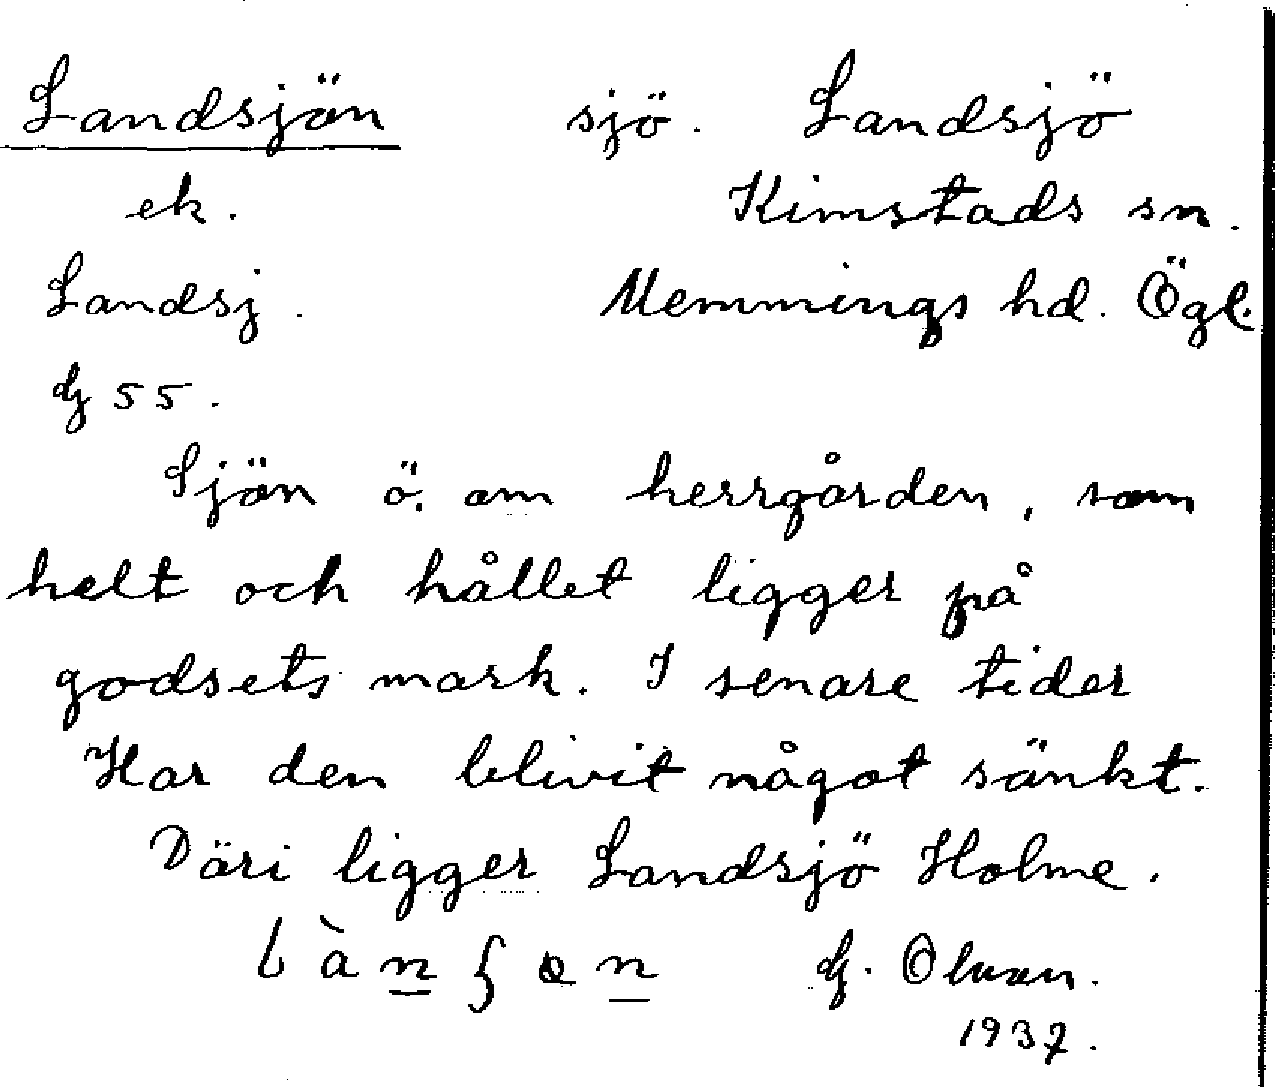 Landsjön sjö. Landsjö
ek. Kimstads sn.
Landsj. Memmings hd. Ögl.
G 55.
Sjön ö. om herrgården, som
helt och hållet ligger på
godsets mark. I senare tider
Har den blivit något sänkt.
Däri ligger Landsjö Holme.
G.
1937.